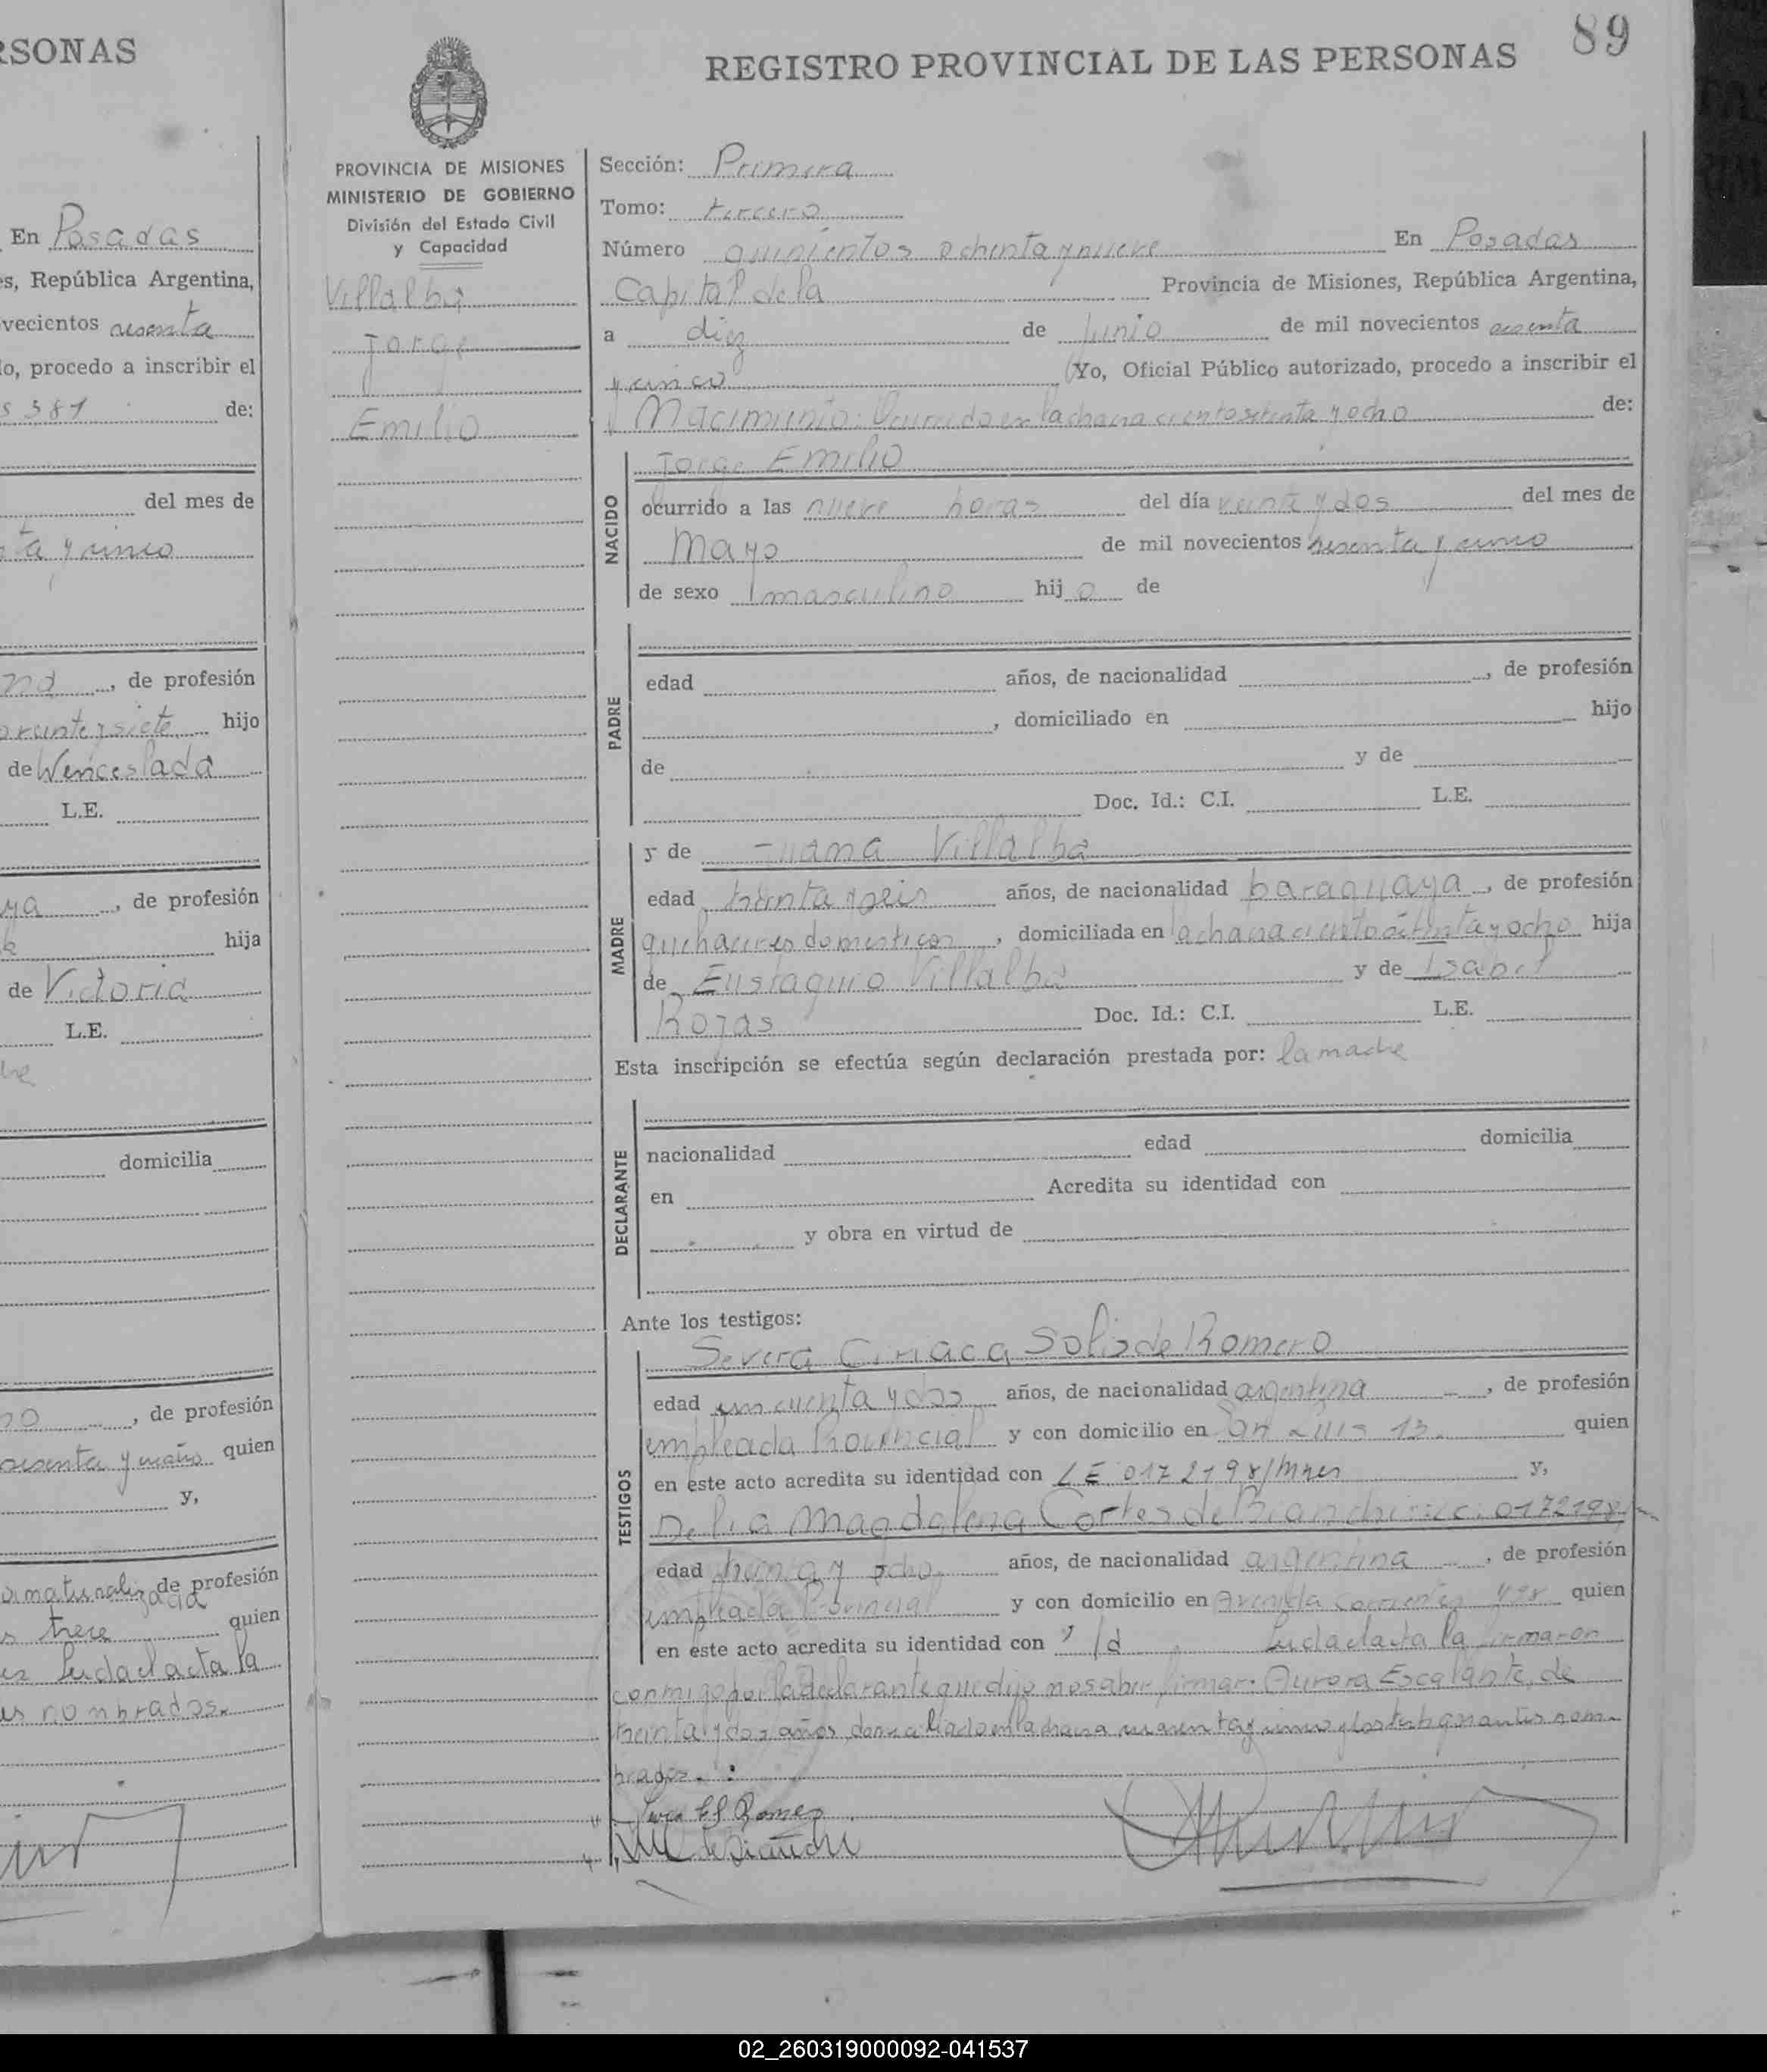 RSONAS
En Posadas
es, República Argentina,
vecientos sesenta
lo, procedo a inscribir el
s 381 de:
del mes de
ta y cinco
na, de profesión
siete hijo
de Wenceslada
L.E.
ya, de profesión
hija
de Victoria
L.E.
domicilia
no, de profesión
sesenta y quien
y,
naturalizada de profesión
s trece quien
Leida el acta la
nombrados.
89
REGISTRO PROVINCIAL DE LAS PERSONAS
PROVINCIA DE MISIONES
MINISTERIO DE GOBIERNO
División del Estado Civil
y Capacidad
Villalba
Jorge
Emilio
Sección: Primera
Tomo: tercero
Número quinientos ochenta y nueve En Posadas
Capital de la Provincia de Misiones, República Argentina,
a diez de Junio de mil novecientos sesenta
y cinco Yo, Oficial Público autorizado, procedo a inscribir el
Nacimiento: Ocurrido en la chacra ciento setenta y ocho de:
NACIDO
Jorge Emilio
ocurrido a las nueve horas del día veinte y dos del mes de
Mayo de mil novecientos sesenta y cinco
de sexo masculino hijo de
PADRE
edad años, de nacionalidad , de profesión
, domiciliado en hijo
de y de
Doc. Id.: C.I. L.E.
MADRE
y de Juana Villalba
edad treinta y seis años, de nacionalidad paraguaya, de profesión
quehaceres domesticos, domiciliada en la chacra ciento setenta y ocho hija
de Eustaquio Villalba y de Isabel
Rojas Doc. Id.: C.I. L.E.
Esta inscripción se efectúa según declaración prestada por: la madre
DECLARANTE
nacionalidad edad domicilia
en Acredita su identidad con
y obra en virtud de
Ante los testigos:
TESTIGOS
Severa Ciriaca Solis de Romero
edad cincuenta y dos años, de nacionalidad argentina, de profesión
empleada Provincial y con domicilio en San Luis 13. quien
en este acto acredita su identidad con L E 0172198/Mnes y,
Delia Magdalena Cortes de Bianchi 0172198
edad treinta y ocho años, de nacionalidad argentina, de profesión
empleada Provincial y con domicilio en Avenida Corrientes 498 quien
en este acto acredita su identidad con Id Leida el acta la firmaron
conmigo por la declarante que dijo no saber firmar: Aurora Escalante, de
treinta y dos años, domiciliado en la chacra cuarenta y cinco y los testigos antes nom-
brados.